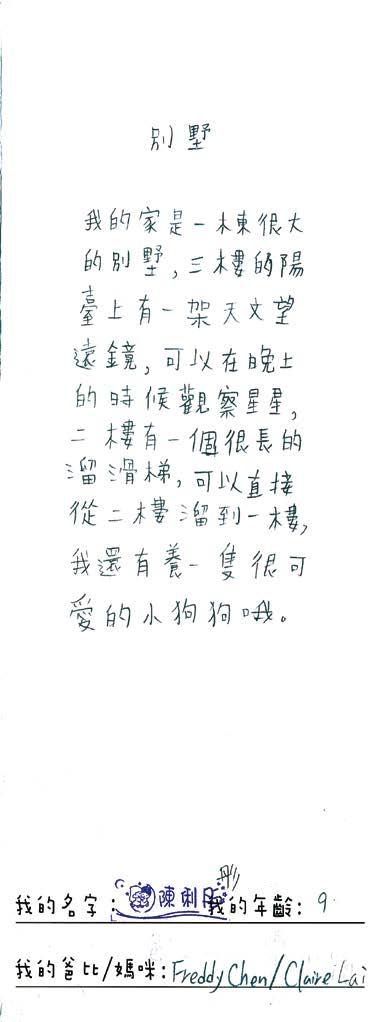 別墅
我的家是一棟很大
的別墅,三樓的陽
臺上有一架天文望
遠鏡,可以在晚上
的時候觀察星星,
二樓有一個很長的
溜滑梯,可以直接
從二樓溜到一樓,
我還有養一隻很可
愛的小狗狗哦。
彤
我的名字: 陳 我的年齡: 9
我的爸比/媽咪: Freddy Chen/Claire Lai